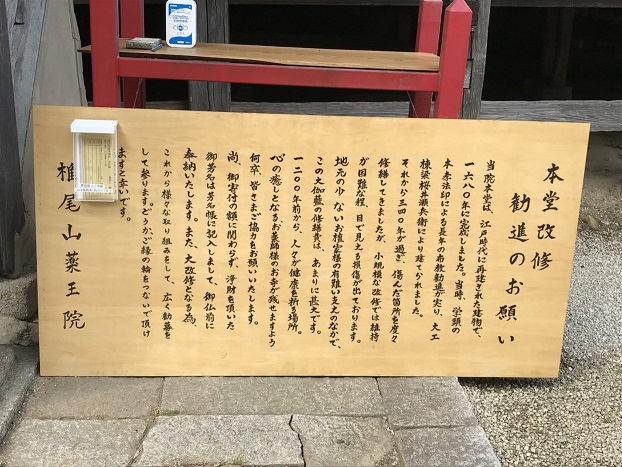 本堂改修
勧進のお願い
当院本堂は、江戸時代に再建された建物で、
一六八〇年に完成しました。当時、学頭の
本孝法印による長年の布教勧進が実り、大工
棟梁桜井瀬兵衛により建てられました。
それから三四〇年が過ぎ、傷んだ箇所を度々
修繕してきましたが、小規模な改修では維持
が困難な程、目で見える損傷が出ております。
地元の少ないお檀家様の有難い支えのなかで、
この大伽藍の修繕費は、あまりに甚大です。
一二〇〇年前から、人々が健康を祈る場所。
心の癒しとなるお薬師様のお寺が残せますよう
何卒、皆さまご協力をお願いいたします。
尚、御寄付の額に関わらず、浄財を頂いた
御芳名は芳名帳に記入しまして、御仏前に
奉納いたします。また、大改修となる為
これから様々な取り組みをして、広く勧募を
して参ります。どうかご縁の輪をつないで頂け
ますと幸いです。
椎尾山薬王院